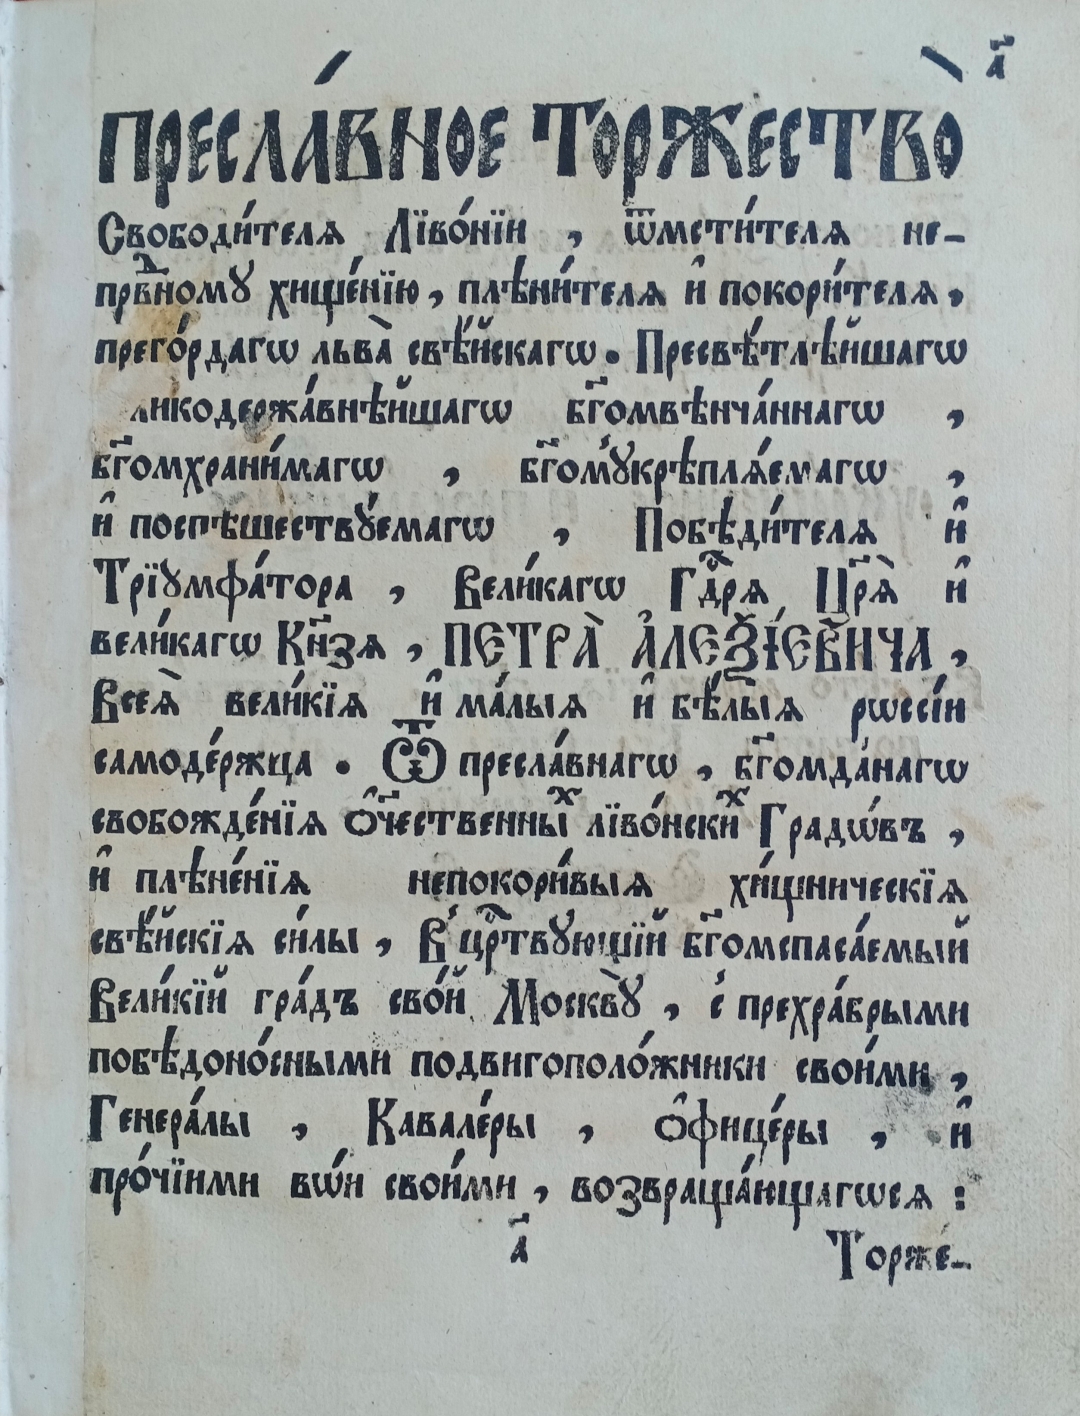 а҃
ПРЕСЛА́ВНОЕ ТОРЖЕСТВО̀
Свободи́телѧ Лїво́нїи , ѿмсти́телѧ не-
прⷡ҇дному хище́нїю , плѣни́телѧ и҆ покори́телѧ ,
прего́рдагѡ льва̀ свѣ́йскагѡ . Пресвѣ́тлѣйшагѡ
ликодержа́внѣйшагѡ бг҃омвѣнча́ннагѡ ,
бг҃омхрани́магѡ , бг҃омꙋкрѣплѧ́емагѡ ,
и҆ поспѣшествꙋ́емагѡ , Побѣди́телѧ и҆
Трїꙋмфа́тора , Вели́кагѡ Гдⷭ҇рѧ Цр҃ѧ̀ и҆
вели́кагѡ Кн҃зѧ , ПЕТРА̀ А҆ЛЕѮІ́ЕВИЧА ,
Всеѧ̀ вели́кїѧ и҆ ма́лыѧ и҆ бѣ́лыѧ рѡссі́и
самоде́ржца . Ѿ пресла́внагѡ , бг҃омда́нагѡ
свобожде́нїѧ ѻ҆те́чественныⷯ лїво́нскиⷯ Градѡ́въ ,
и҆ плѣне́нїѧ непокори́выѧ хи́щническїѧ
свѣ́йскїѧ си́лы , В̾ црⷭ҇твꙋющїй бг҃омспаса́емый
Вели́кїй гра́дъ сво́й Москвꙋ̀ , с̾ прехра́брыми
побѣдоно́сными подвигополо́жники свои́ми ,
Генера́лы , Кавале́ры , ѻ҆фице́ры , и҆
про́чїими вѡ́и свои́ми , возвраща́ющагѡсѧ :
а҃
Торже-